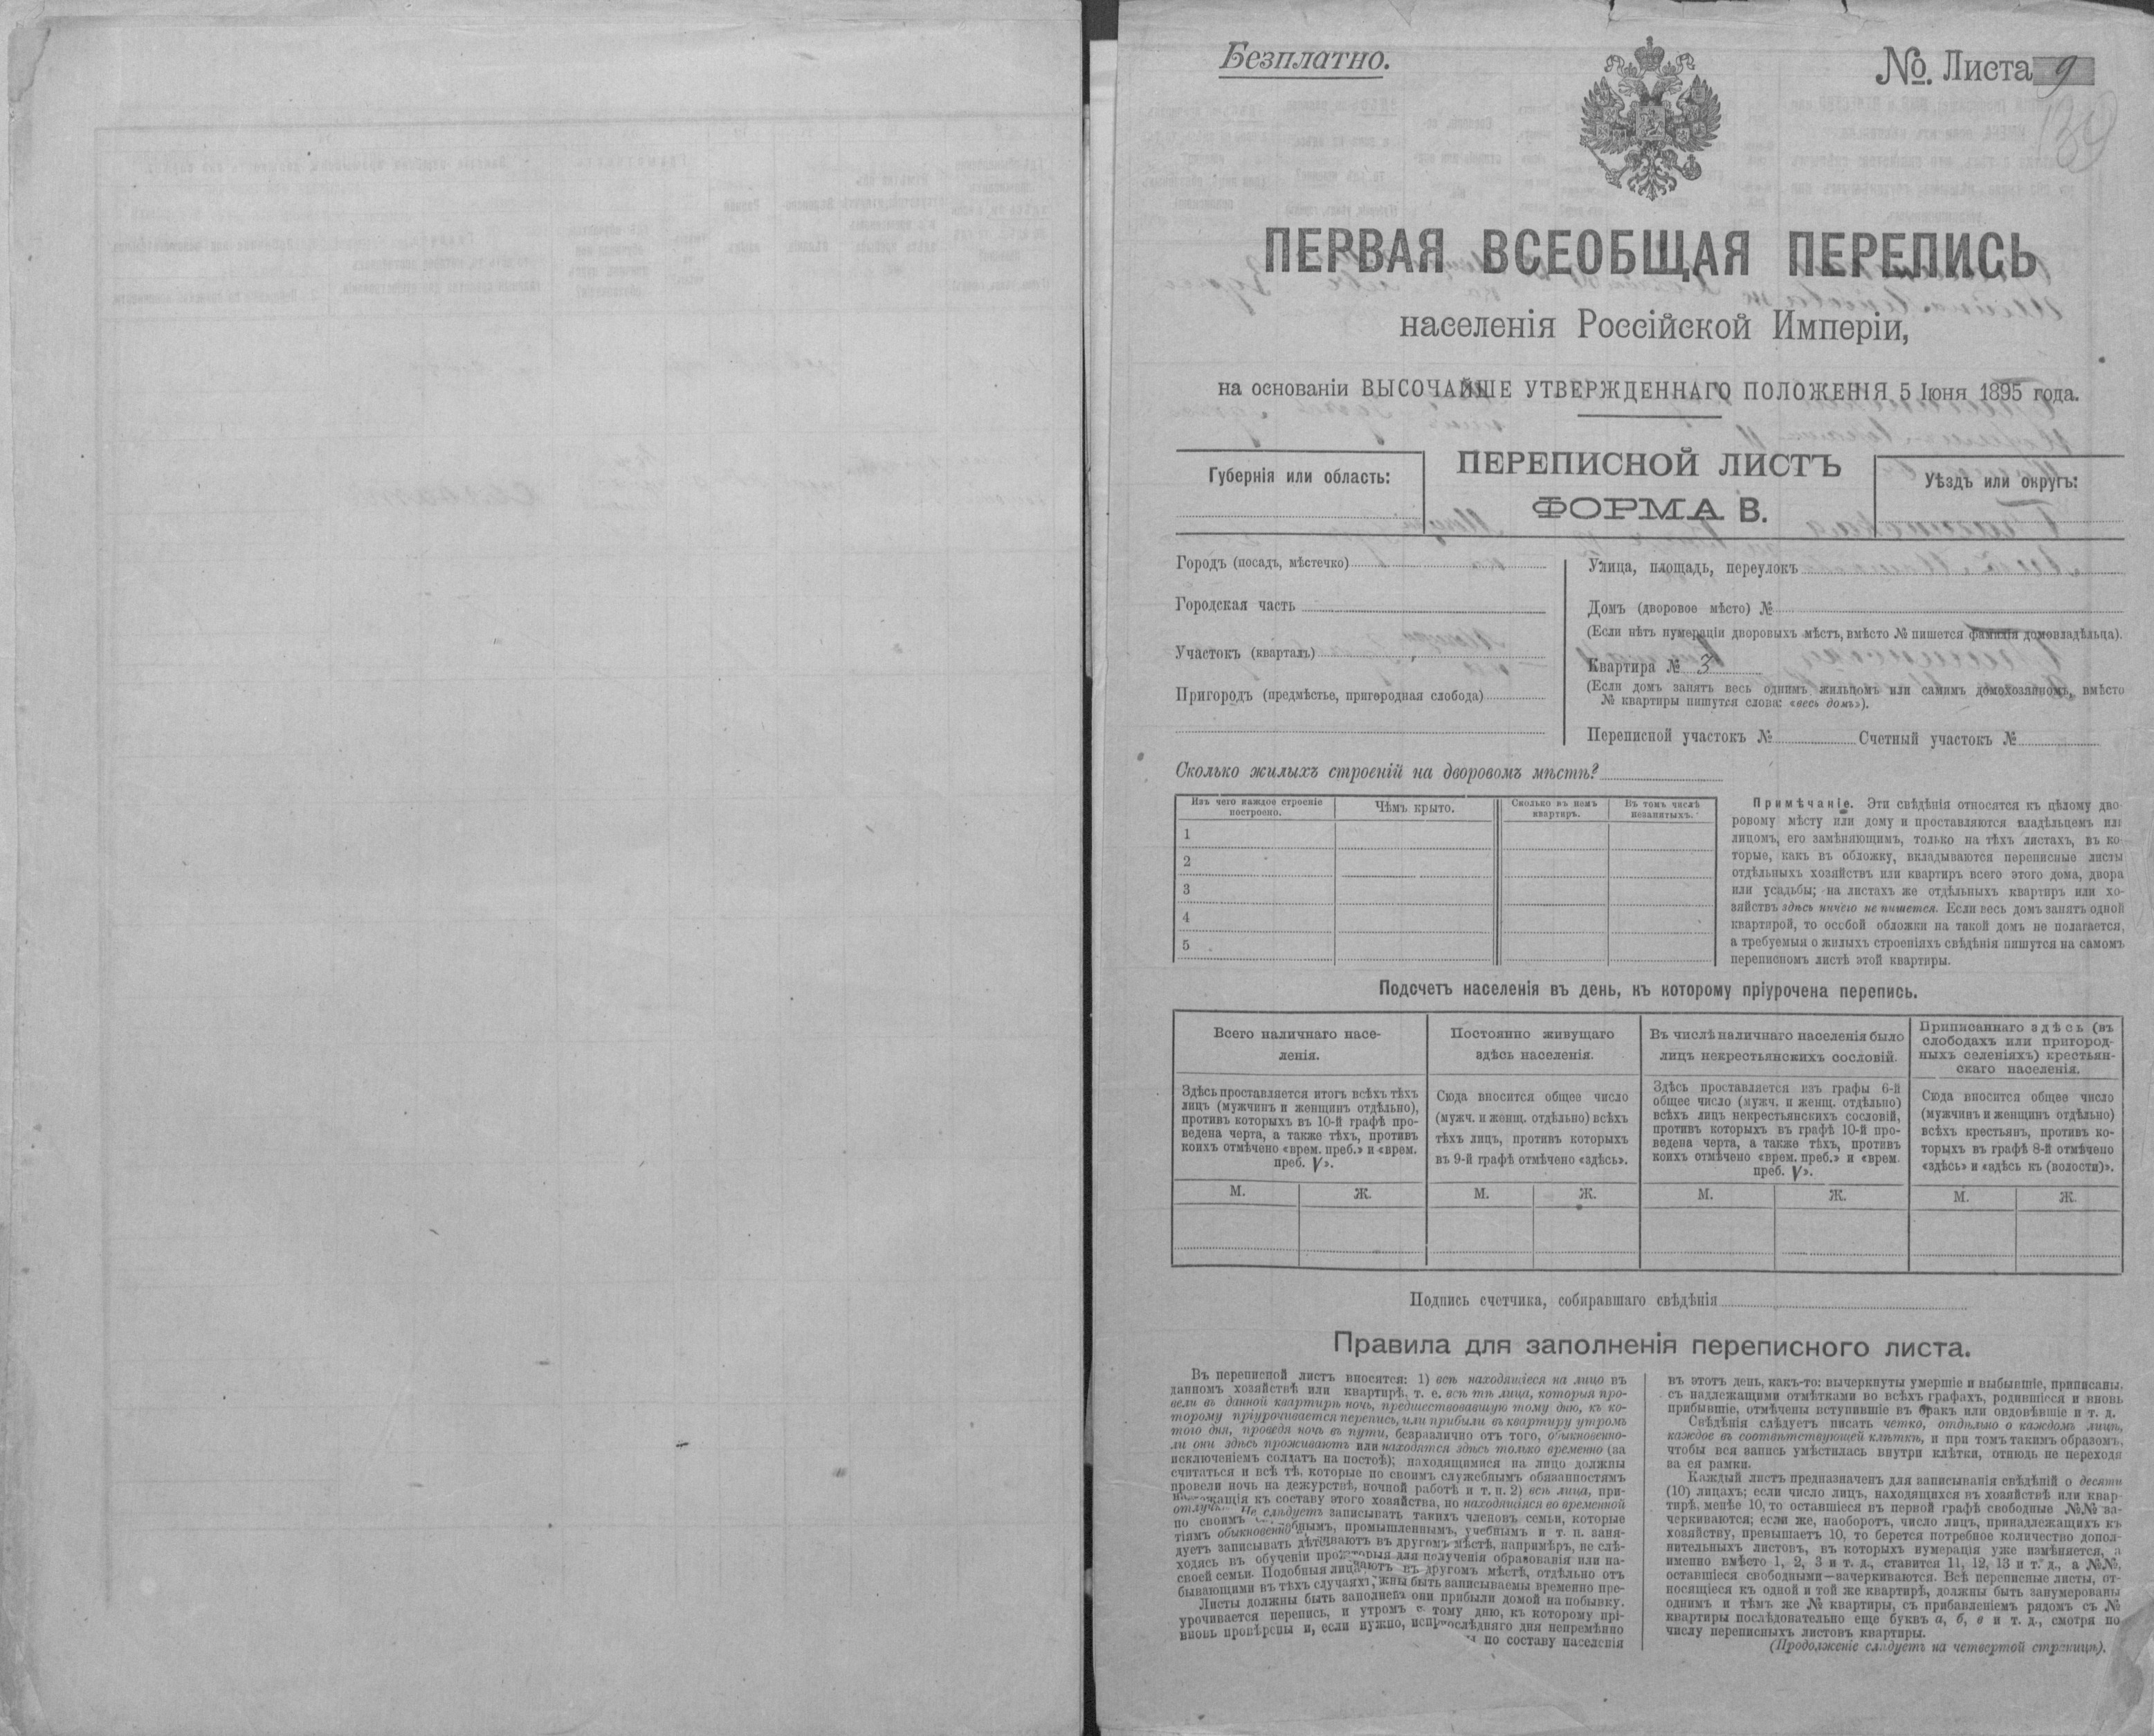 Безплатно.
№. Листа 9
139
ПЕРВАЯ ВСЕОБЩАЯ ПЕРЕПИСЬ
населенія Россійской Имперіи,
на основаніи ВЫСОЧАЙШЕ УТВЕРЖДЕННАГО ПОЛОЖЕНІЯ 5 Іюня 1895 года.
Губернія или область:
ПЕРЕПИСНОЙ ЛИСТЪ
ФОРМА В.
Уѣздъ или округъ:
Городъ (посадъ, мѣстечко)
Городская часть
Участокъ (кварталъ)
Пригородъ (предмѣстье, пригородная слобода)
Улица, площадь, переулокъ
Домъ (дворовое мѣсто) №
(Если нѣтъ нумераціи дворовыхъ мѣстъ, вмѣсто № пишется фамилія домовладѣльца).
Квартира № 3
(Если домъ занятъ весь однимъ жильцомъ или самимъ домохозяиномъ, вмѣсто
№ квартиры пишутся слова: «весь домъ»).
Переписной участокъ № Счетный участокъ №
Сколько жилыхъ строеній на дворовомъ мѣстѣ?
Изъ чего каждое строеніе
построено.
Чѣмъ крыто.
Сколько въ немъ
квартиръ.
Въ томъ числѣ
незанятыхъ.
1
2
3
4
5
Примѣчаніе. Эти свѣдѣнія относятся къ цѣлому дво-
ровому мѣсту или дому и проставляются владѣльцемъ или
лицомъ, его замѣняющимъ, только на тѣхъ листахъ, въ ко-
торые, какъ въ обложку, вкладываются переписные листы
отдѣльныхъ хозяйствъ или квартиръ всего этого дома, двора
или усадьбы; на листахъ же отдѣльныхъ квартиръ или хо-
зяйствъ здѣсь ничего не пишется. Если весь домъ занятъ одной
квартирой, то особой обложки на такой домъ не полагается,
а требуемыя о жилыхъ строеніяхъ свѣдѣнія пишутся на самомъ
переписномъ листѣ этой квартиры.
Подсчетъ населенія въ день, къ которому пріурочена перепись.
Всего наличнаго насе-
ленія.
Постоянно живущаго
здѣсь населенія.
Въ числѣ наличнаго населенія было
лицъ некрестьянскихъ сословій.
Приписаннаго здѣсь (въ
слободахъ или пригород-
ныхъ селеніяхъ) крестьян-
скаго населенія.
Здѣсь проставляется итогъ всѣхъ тѣхъ
лицъ (мужчинъ и женщинъ отдѣльно),
противъ которыхъ въ 10-й графѣ про-
ведена черта, а также тѣхъ, противъ
коихъ отмѣчено «врем. преб.» и «врем.
преб. V».
Сюда вносится общее число
(мужч. и женщ. отдѣльно) всѣхъ
тѣхъ лицъ, противъ которыхъ
въ 9-й графѣ отмѣчено «здѣсь».
Здѣсь проставляется изъ графы 6-й
общее число (мужч. и женщ. отдѣльно)
всѣхъ лицъ некрестьянскихъ сословій,
противъ которыхъ въ графѣ 10-й про-
ведена черта, а также тѣхъ, противъ
коихъ отмѣчено «врем. преб.» и «врем.
преб. V».
Сюда вносится общее число
(мужчинъ и женщинъ отдѣльно)
всѣхъ крестьянъ, противъ ко-
торыхъ въ графѣ 8-й отмѣчено
«здѣсь» и «здѣсь къ (волости)».
М. Ж. М. Ж. М. Ж. М. Ж.
Подпись счетчика, собиравшаго свѣдѣнія
Правила для заполненія переписного листа.
Въ переписной листъ вносятся: 1) всѣ находящіеся на лицо въ
данномъ хозяйствѣ или квартирѣ, т. е. всѣ тѣ лица, которыя про-
вели въ данной квартирѣ ночь, предшествовавшую тому дню, къ ко-
торому пріурочивается перепись, или прибыли въ квартиру утромъ
того дня, проведя ночь въ пути, безразлично отъ того, обыкновенно-
ли они здѣсь проживаютъ или находятся здѣсь только временно (за
исключеніемъ солдатъ на постоѣ); находящимися на лицо должны
считаться и всѣ тѣ, которые по своимъ служебнымъ обязанностямъ
провели ночь на дежурствѣ, ночной работѣ и т. п. 2) всѣ лица, при-
къ составу этого хозяйства, но находящіяся во временной
Не слѣдуетъ записывать такихъ членовъ семьи, которые
по своимъ промышленнымъ, учебнымъ и т. п. заня-
тіямъ обыкновенно въ другомъ мѣстѣ, напримѣръ, не слѣ-
дуетъ записывать для полученія образованія или на-
ходясь въ обученіи въ другомъ мѣстѣ, отдѣльно отъ
своей семьи. Подобныя быть записываемы временно пре-
бывающими въ тѣхъ случаяхъ, они прибыли домой на побывку.
Листы должны быть заполнены тому дню, къ которому прі-
урочивается перепись, и утромъ дня непремѣнно
вновь провѣрены и, если нужно, по составу населенія
въ этотъ день, какъ-то: вычеркнуты умершіе и выбывшіе, приписаны,
съ надлежащими отмѣтками во всѣхъ графахъ, родившіеся и вновь
прибывшіе, отмѣчены вступившіе въ бракъ или овдовѣвшіе и т. д.
Свѣдѣнія слѣдуетъ писать четко, отдѣльно о каждомъ лицѣ,
каждое въ соотвѣтствующей клѣткѣ, и при томъ такимъ образомъ,
чтобы вся запись умѣстилась внутри клѣтки, отнюдь не переходя
за ея рамки.
Каждый листъ предназначенъ для записыванія свѣдѣній о десяти
(10) лицахъ; если число лицъ, находящихся въ хозяйствѣ или квар-
тирѣ, менѣе 10, то оставшіеся въ первой графѣ свободные №№ за-
черкиваются; если же, наоборотъ, число лицъ, принадлежащихъ къ
хозяйству, превышаетъ 10, то берется потребное количество допол-
нительныхъ листовъ, въ которыхъ нумерація уже измѣняется, а
именно вмѣсто 1, 2, 3 и т. д., ставится 11, 12, 13 и т. д., а №№,
оставшіеся свободными—зачеркиваются. Всѣ переписные листы, от-
носящіеся къ одной и той же квартирѣ, должны быть занумерованы
однимъ и тѣмъ же № квартиры, съ прибавленіемъ рядомъ съ №
квартиры послѣдовательно еще буквъ а, б, в и т. д., смотря по
числу переписныхъ листовъ квартиры.
(Продолженіе слѣдуетъ на четвертой страницѣ).